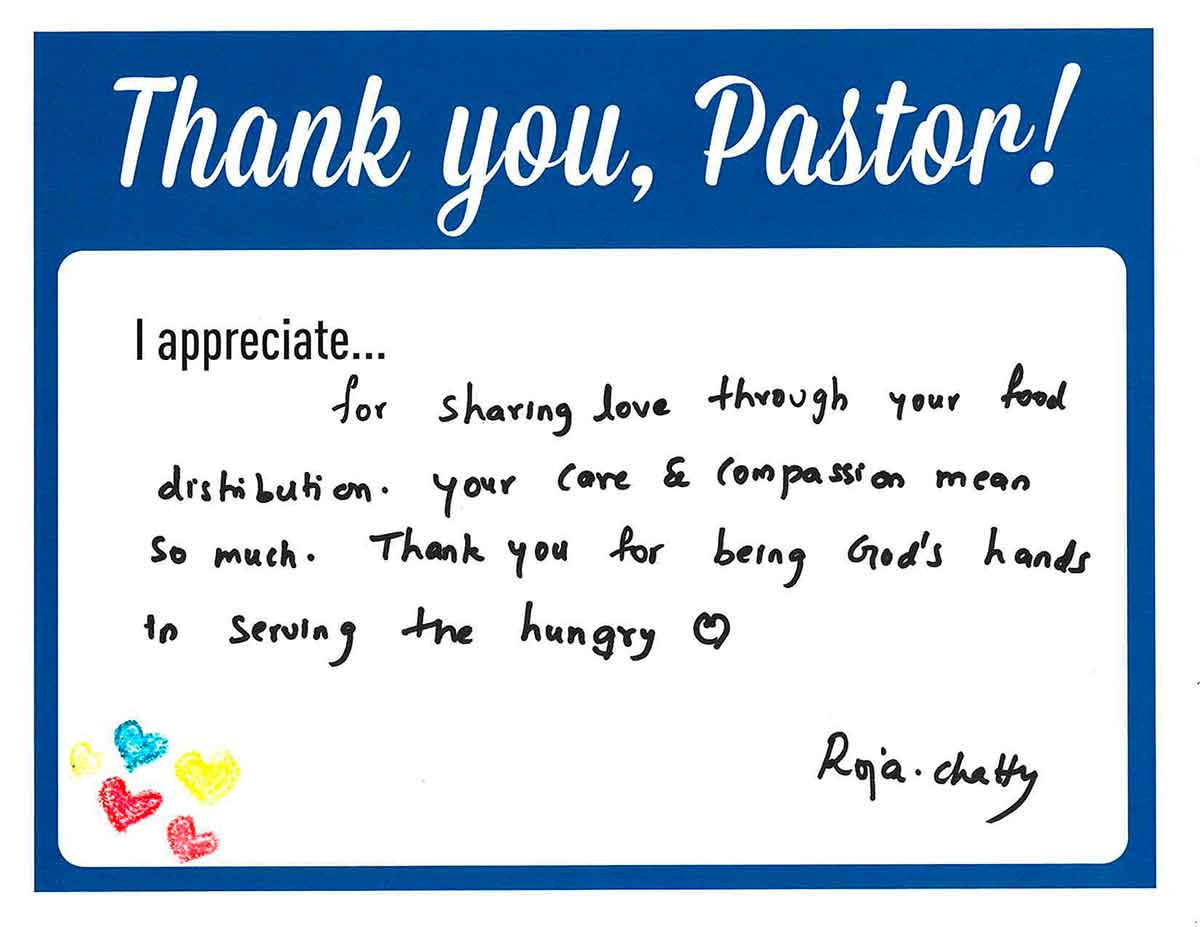 Thank you, Pastor!
I appreciate...
for sharing love through your food
distribution. your care & compassion mean
so much. Thank you for being God's hands
in serving the hungry
Roja. chatty